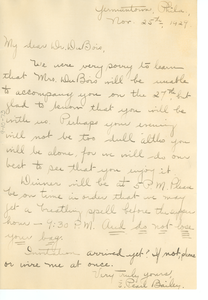 Germantown, Phila.,
Nov. 25th, 1927
My dear Dr. DuBois,
We were very sorry to learn
that Mrs. DuBois will be unable
to accompany you on the 27th but
glad to know that you will be
with us. Perhaps your evening
will not be too dull altho you
will be alone for us will do our
best to see that you enjoy it.
Dinner will be at 5 P.M. Please
be on time in order that we may
get a breathing spell before the open
hour - 7:30 P.M. And do not lose
your bags.
Invitation arrived yet? If not, phone
or wire me at once.
Very truly yours,
Pearl Bailey